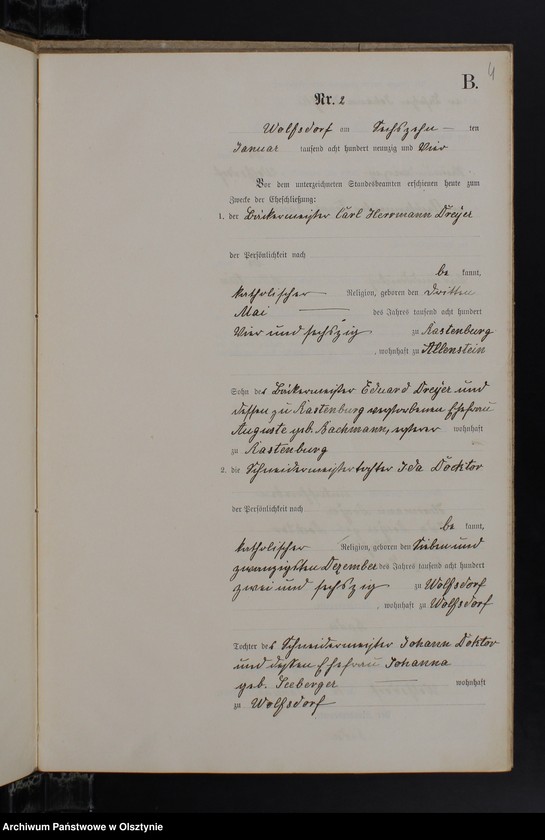 4
B.
Nr. 2
Wolfsdorf am Sechszehn ten
Januar tausend acht hundert neunzig und Vier
Vor dem unterzeichneten Standesbeamten erschienen heute zum
Zwecke der Eheschließung:
1. der Bäckermeister Carl Herrmann Dreyer
der Persönlichkeit nach
be kannt,
katholischer Religion, geboren den Dritten
Mai des Jahres tausend acht hundert
Vier und sechszig zu Rastenburg
, wohnhaft zu Allenstein
Sohn des Bäckermeister Eduard Dreyer und
dessen zu Rastenburg verstorbenen Ehefrau
Auguste geb. Bachmann, ersterer wohnhaft
zu Rastenburg
2. die Schneidermeistertochter Ida Docktor
der Persönlichkeit nach
be kannt,
katholischer Religion, geboren den Sieben und
zwanzigsten Dezember des Jahres tausend acht hundert
zwei und sechszig zu Wolfsdorf
, wohnhaft zu Wolfsdorf
Tochter des Schneidermeister Johann Doktor
und dessen Ehefrau Johanna
geb. Seeberger wohnhaft
zu Wolfsdorf
Archiwum Państwowe w Olsztynie